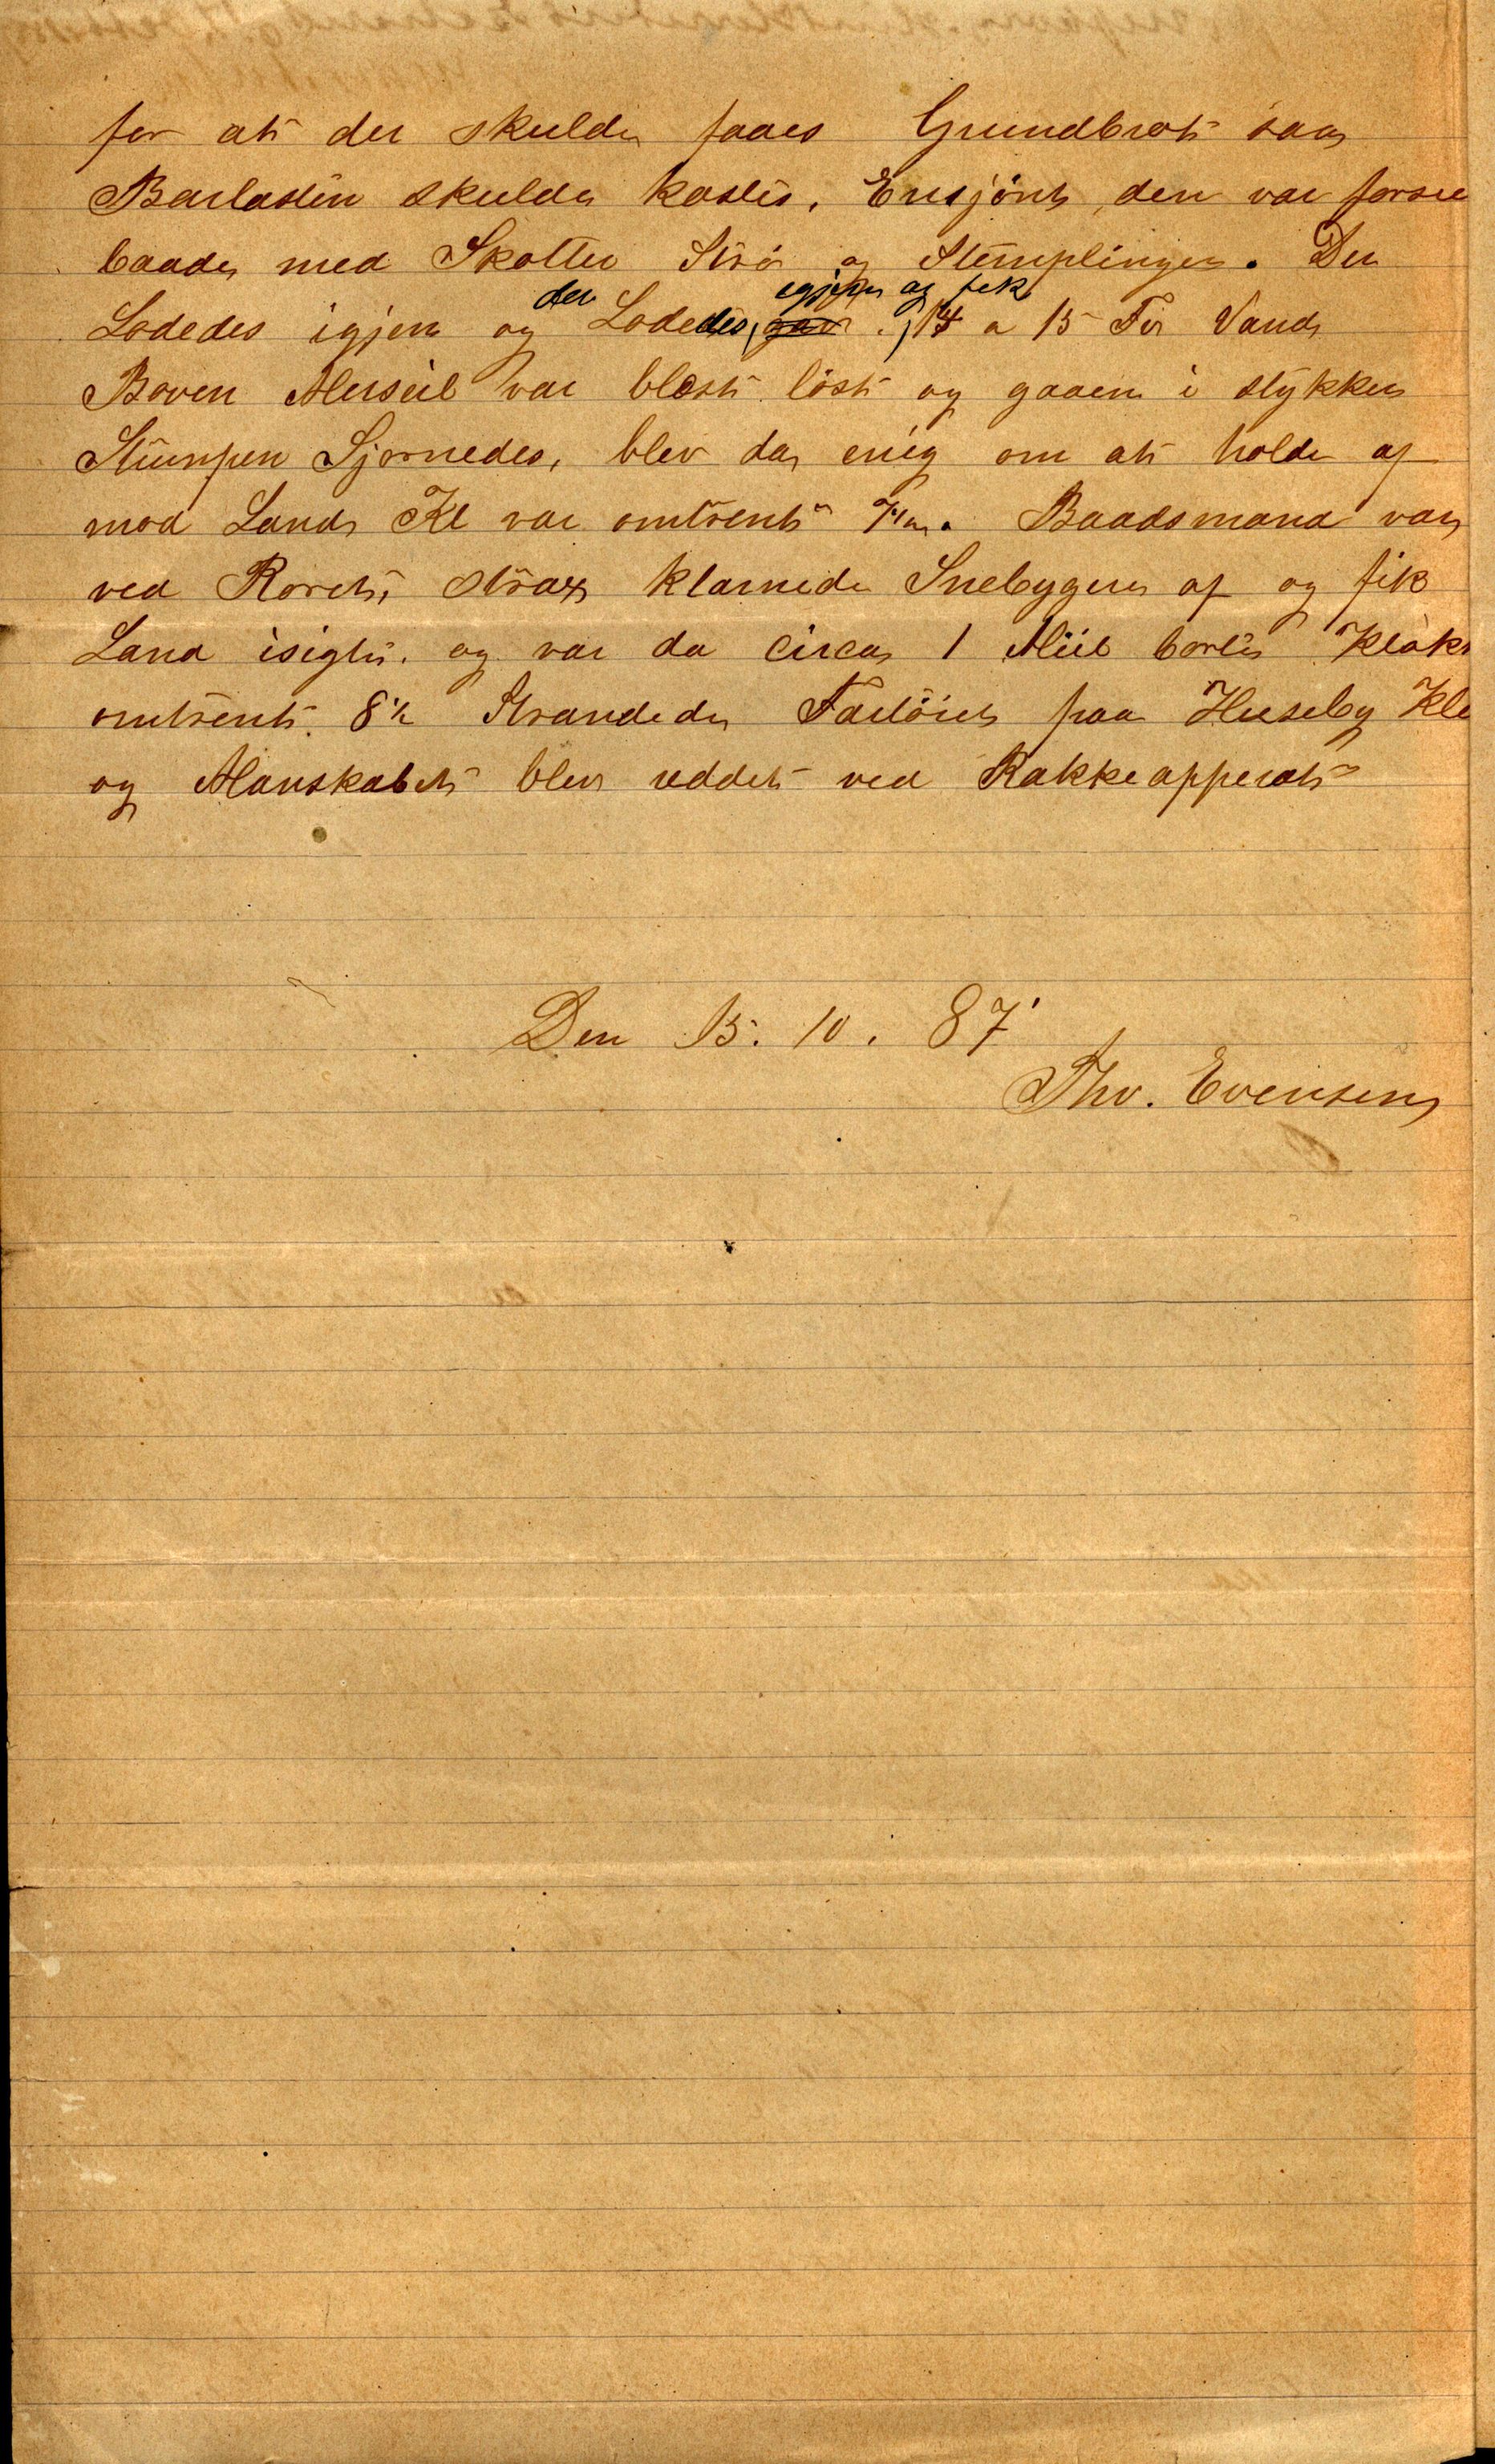 for at der skulde faaes Grundbrot saa
Barlasten skulde kastes. Ensjønt den var forsee
baade med Skotter Strø og Stemplinger. Der
Lodedes igjen og der Lodedes, igjen og fik 14 a 15 Fv Vand
Boven Merseil var blæst löst og gaaen i stykker
Stumpen Sjornedes, blev da enig om at holde af
mod Land Kl var omtrent 7 1/2. Baadsmand var
ved Roret, strax klarnede Snebygen af og fik
Land isigte. og var da circa 1 Miil borte Klok
omtrent 8 1/2 Strandede Fartöiet paa Huseby Kle
og Manskabet blev reddet ved Rakkeapperat
Den 15. 10. 87
Thv. Evensen